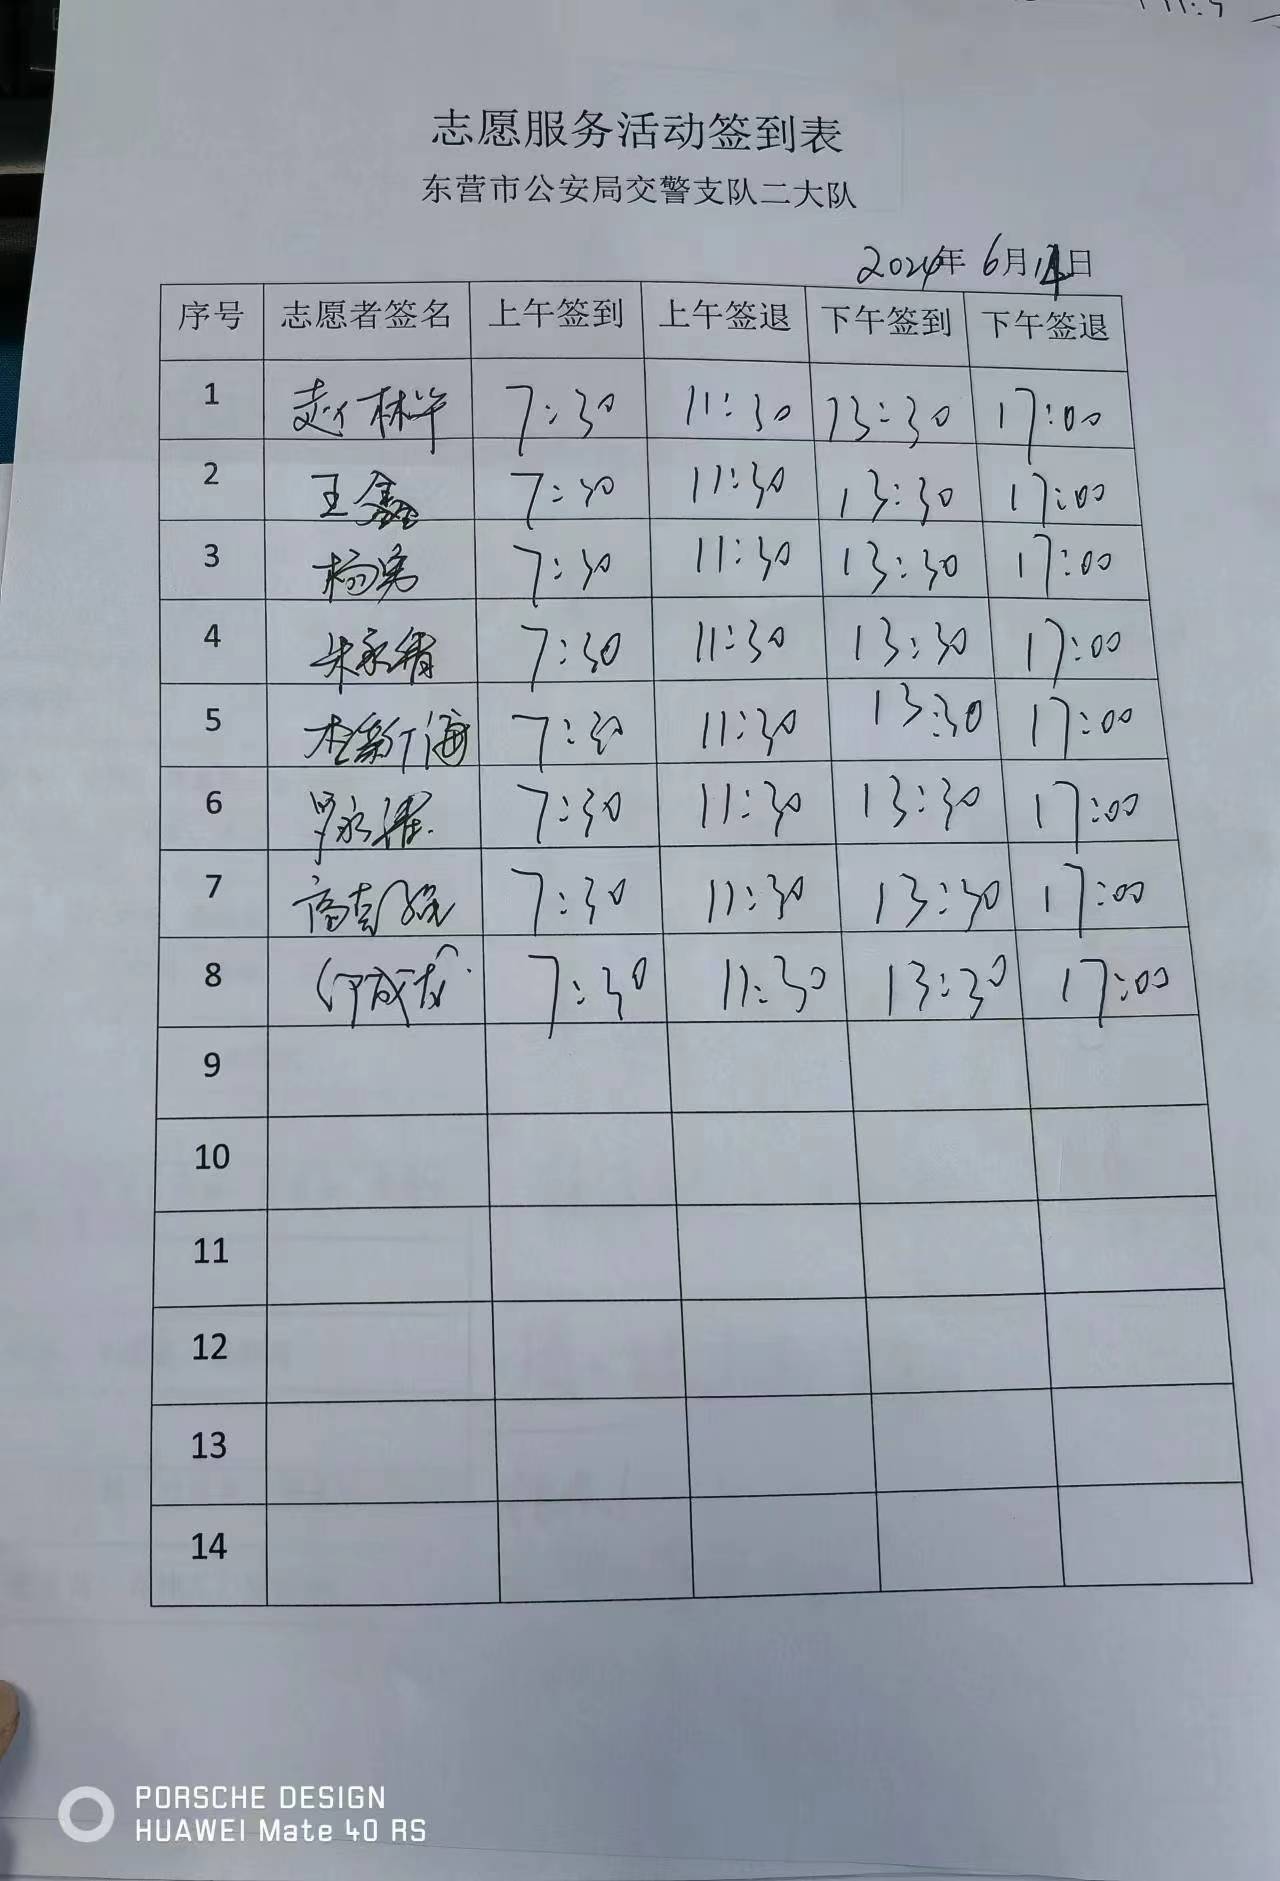 志愿服务活动签到表
东营市公安局交警支队二大队
2024年 6月14日
序号 志愿者签名 上午签到 上午签退 下午签到 下午签退
1 赵林 7:30 11:30 13:30 17:00
2 王鑫 7:30 11:30 13:30 17:00
3 杨 7:30 11:30 13:30 17:00
4 朱永 7:30 11:30 13:30 17:00
5 杜新海 7:30 11:30 13:30 17:00
6 罗永 7:30 11:30 13:30 17:00
7 高 7:30 11:30 13:30 17:00
8 何成龙 7:30 11:30 13:30 17:00
9
10
11
12
13
14
PORSCHE DESIGN
HUAWEI Mate 40 RS